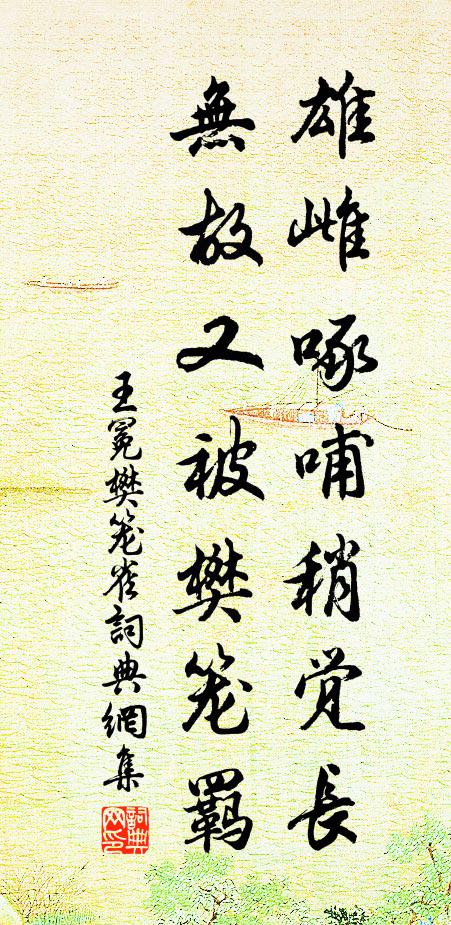 雄雌啄哺稍觉長
無故又被樊笼羈
王冕樊笼雀詞典網集
詞典网印